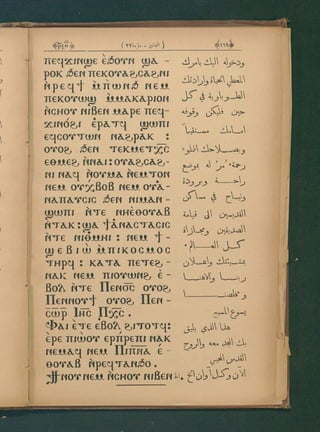 ⲡⲉϥϫⲓⲛϣⲉ ⲉ̀ϧⲟⲩⲛ ϣⲁ-
ⲣⲟⲕ ϧⲉⲛ ⲡⲉⲕⲟⲩⲁϩⲥⲁϩⲛⲓ
ⲛ̀ⲣⲉϥϯ ⲙ̀ⲡⲱⲛϧ ⲛⲉⲙ
ⲡⲉⲕⲟⲩⲱϣ ⲙ̀ⲙⲁⲕⲁⲣⲓⲟⲛ
ⲛ̀ⲥⲏⲟⲩ ⲛⲓⲃⲉⲛ ⲙⲁⲣⲉ ⲡⲉϥ-
ϫⲓⲛⲟ̀ϩⲓ ⲉ̀ⲣⲁⲧϥ ϣⲱⲡⲓ
ⲉϥⲥⲟⲩⲧⲱⲛ ⲛⲁϩⲣⲁⲕ :
ⲟⲩⲟϩ ϧⲉⲛ ⲧⲉⲕⲙⲉⲧⲭ̅ⲥ̅
ⲉⲑⲙⲉϩ ⲛ̀ⲛⲁⲓ : ⲟⲩⲁϩⲥⲁϩ-
ⲛⲓ ⲛⲁϥ ⲛ̀ⲟⲩⲙⲁ ⲛ̀ⲉⲙⲧⲟⲛ
ⲛⲉⲙ ⲟⲩⲭ̀ⲃⲟⲃ ⲛⲉⲙ ⲟⲩⲁ̀-
ⲛⲁⲡⲁⲩⲥⲓⲥ ϧⲉⲛ ⲛⲓⲙⲁⲛ-
ϣⲱⲡⲓ ⲛ̀ⲧⲉ ⲛⲏⲉⲑⲟⲩⲁⲃ
ⲛ̀ⲧⲁⲕ : ϣⲁ ϯⲁ̀ⲛⲁⲥⲧⲁⲥⲓⲥ
ⲛ̀ⲧⲉ ⲛⲓⲑ̀ⲙⲏⲓ : ⲛⲉⲙ ϯ-
ϣⲉⲃⲓⲱ̀ ⲙ̀ⲡⲓⲕⲟⲥⲙⲟⲥ
ⲧⲏⲣϥ : ⲕⲁⲧⲁ ⲡⲉⲧⲉϩ-
ⲛⲁⲕ ⲛⲉⲙ ⲡⲓⲟⲩⲱⲛϩ ⲉ̀-
ⲃⲟⲗ ⲛ̀ⲧⲉ Ⲡⲉⲛⲟ̅ⲥ̅ ⲟⲩⲟϩ
Ⲡⲉⲛⲛⲟⲩϯ ⲟⲩⲟϩ Ⲡⲉⲛ-
ⲥ̅ⲱ̅ⲣ̅ Ⲓⲏ̅ⲥ̅ Ⲡⲭ̅ⲥ̅ .
Ⲫⲁⲓ ⲉ̀ⲧⲉ ⲉ̀ⲃⲟⲗ ϩⲓⲧⲟⲧϥ:
ⲉ̀ⲣⲉ ⲡⲓⲱ̀ⲟⲩ ⲉⲣⲡ̀ⲣⲉⲡⲓ ⲛⲁⲕ
ⲛⲉⲙⲁϥ ⲛⲉⲙ Ⲡⲓⲡ̅ⲛ̅ⲁ̅ ⲉ̀-
ⲑⲟⲩⲁⲃ ⲛ̀ⲣⲉϥⲧⲁⲛϧⲟ .
Ϯⲛⲟⲩ ⲛⲉⲙ ⲛ̀ⲥⲏⲟⲩ ⲛⲓⲃⲉⲛ
ودخوله اليك بامرك
المعطي الحياة وارادتك
الطوباوية في كل
حين فليكن وقوفه
امامك مستقيماً
رحمة مر له بموضع
راحة وبرودة
ونياح في مساكن
القديسين الى قيامة
الصديقين ومجازاة
كل العالم
كمشيئتك واعلان
ربنا والاهنا
ومخلصنا
يسوع المسيح
هذا الذي يليق
بك المجد معه والروح
القدس المحيي
الآن وكل أوان الخ